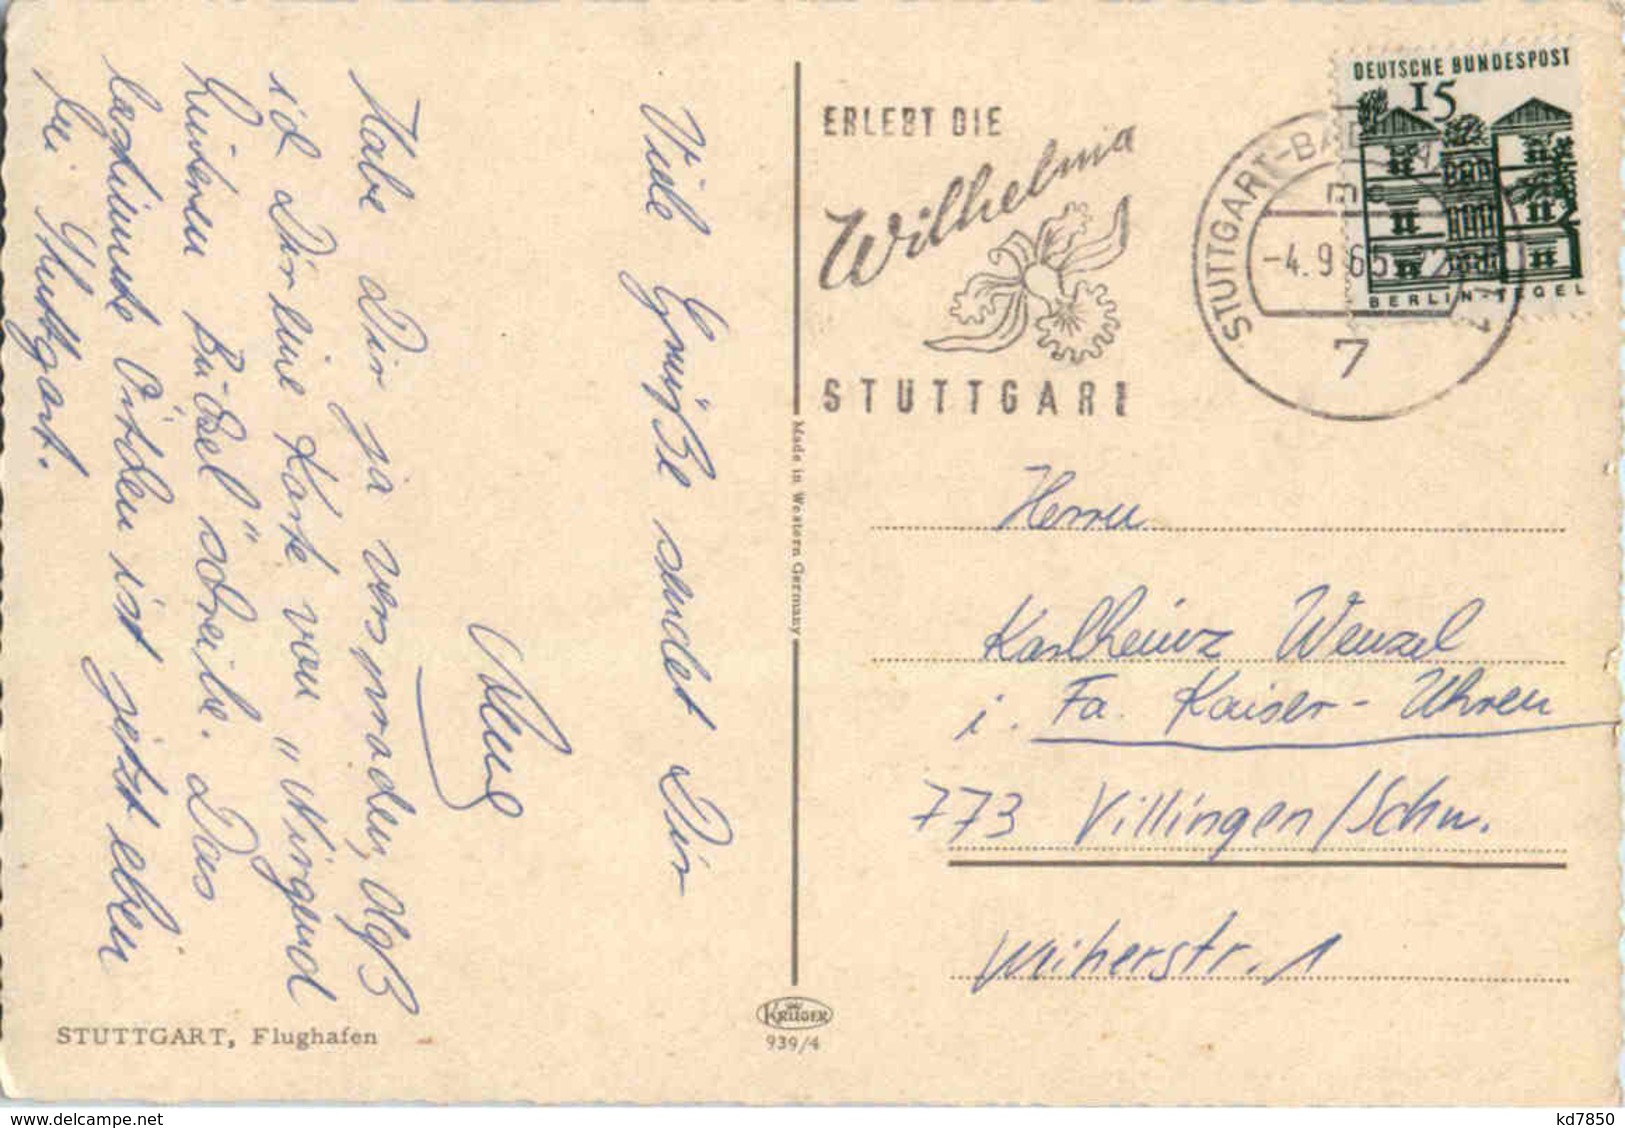 Viele Grüße sendet Dir
Habe Dir ja versprochen, daß
ich Dir eine Karte von „Nirgend
Hinterm Büchsel" schreibe. Das
bestimmte Örtchen ist jetzt eben
bei Stuttgart.
STUTTGART, Flughafen
Made in Western Germany
KRÜGER
939/4
ERLEBT DIE
Wilhelmia
STUTTGART
STUTTGART-BAD
-4. 9 65
7
DEUTSCHE BUNDESPOST
15
BERLIN-TEGEL
Herrn
Karlheinz Wenzel
i. Fa. Kaiser-Uhren
773 Villingen/Schw.
Wiherstr. 1
delcampe.net
kd7850